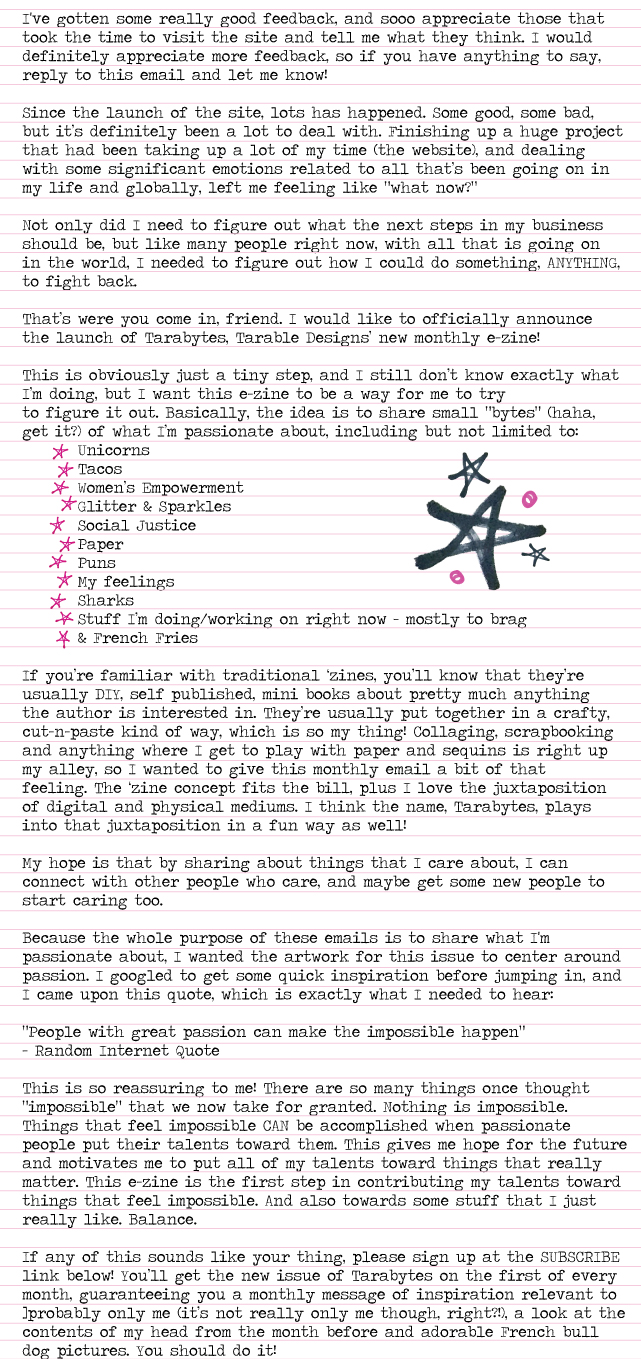 I've gotten some really good feedback, and sooo appreciate those that
took the time to visit the site and tell me what they think. I would
definitely appreciate more feedback, so if you have anything to say,
reply to this email and let me know!
Since the launch of the site, lots has happened. Some good, some bad,
but it's definitely been a lot to deal with. Finishing up a huge project
that had been taking up a lot of my time (the website), and dealing
with some significant emotions related to all that's been going on in
my life and globally, left me feeling like "what now?"
Not only did I need to figure out what the next steps in my business
should be, but like many people right now, with all that is going on
in the world, I needed to figure out how I could do something, ANYTHING,
to fight back.
That's were you come in, friend. I would like to officially announce
the launch of Tarabytes, Tarable Designs' new monthly e-zine!
This is obviously just a tiny step, and I still don't know exactly what
I'm doing, but I want this e-zine to be a way for me to try
to figure it out. Basically, the idea is to share small "bytes" (haha,
get it?) of what I'm passionate about, including but not limited to:
Unicorns
Tacos
Women's Empowerment
Glitter & Sparkles
Social Justice
Paper
Puns
My feelings
Sharks
Stuff I'm doing/working on right now - mostly to brag
& French Fries
If you're familiar with traditional 'zines, you'll know that they're
usually DIY, self published, mini books about pretty much anything
the author is interested in. They're usually put together in a crafty,
cut-n-paste kind of way, which is so my thing! Collaging, scrapbooking
and anything where I get to play with paper and sequins is right up
my alley, so I wanted to give this monthly email a bit of that
feeling. The 'zine concept fits the bill, plus I love the juxtaposition
of digital and physical mediums. I think the name, Tarabytes, plays
into that juxtaposition in a fun way as well!
My hope is that by sharing about things that I care about, I can
connect with other people who care, and maybe get some new people to
start caring too.
Because the whole purpose of these emails is to share what I'm
passionate about, I wanted the artwork for this issue to center around
passion. I googled to get some quick inspiration before jumping in, and
I came upon this quote, which is exactly what I needed to hear:
"People with great passion can make the impossible happen"
- Random Internet Quote
This is so reassuring to me! There are so many things once thought
"impossible" that we now take for granted. Nothing is impossible.
Things that feel impossible CAN be accomplished when passionate
people put their talents toward them. This gives me hope for the future
and motivates me to put all of my talents toward things that really
matter. This e-zine is the first step in contributing my talents toward
things that feel impossible. And also towards some stuff that I just
really like. Balance.
If any of this sounds like your thing, please sign up at the SUBSCRIBE
link below! You'll get the new issue of Tarabytes on the first of every
month, guaranteeing you a monthly message of inspiration relevant to
]probably only me (it's not really only me though, right?!), a look at the
contents of my head from the month before and adorable French bull
dog pictures. You should do it!